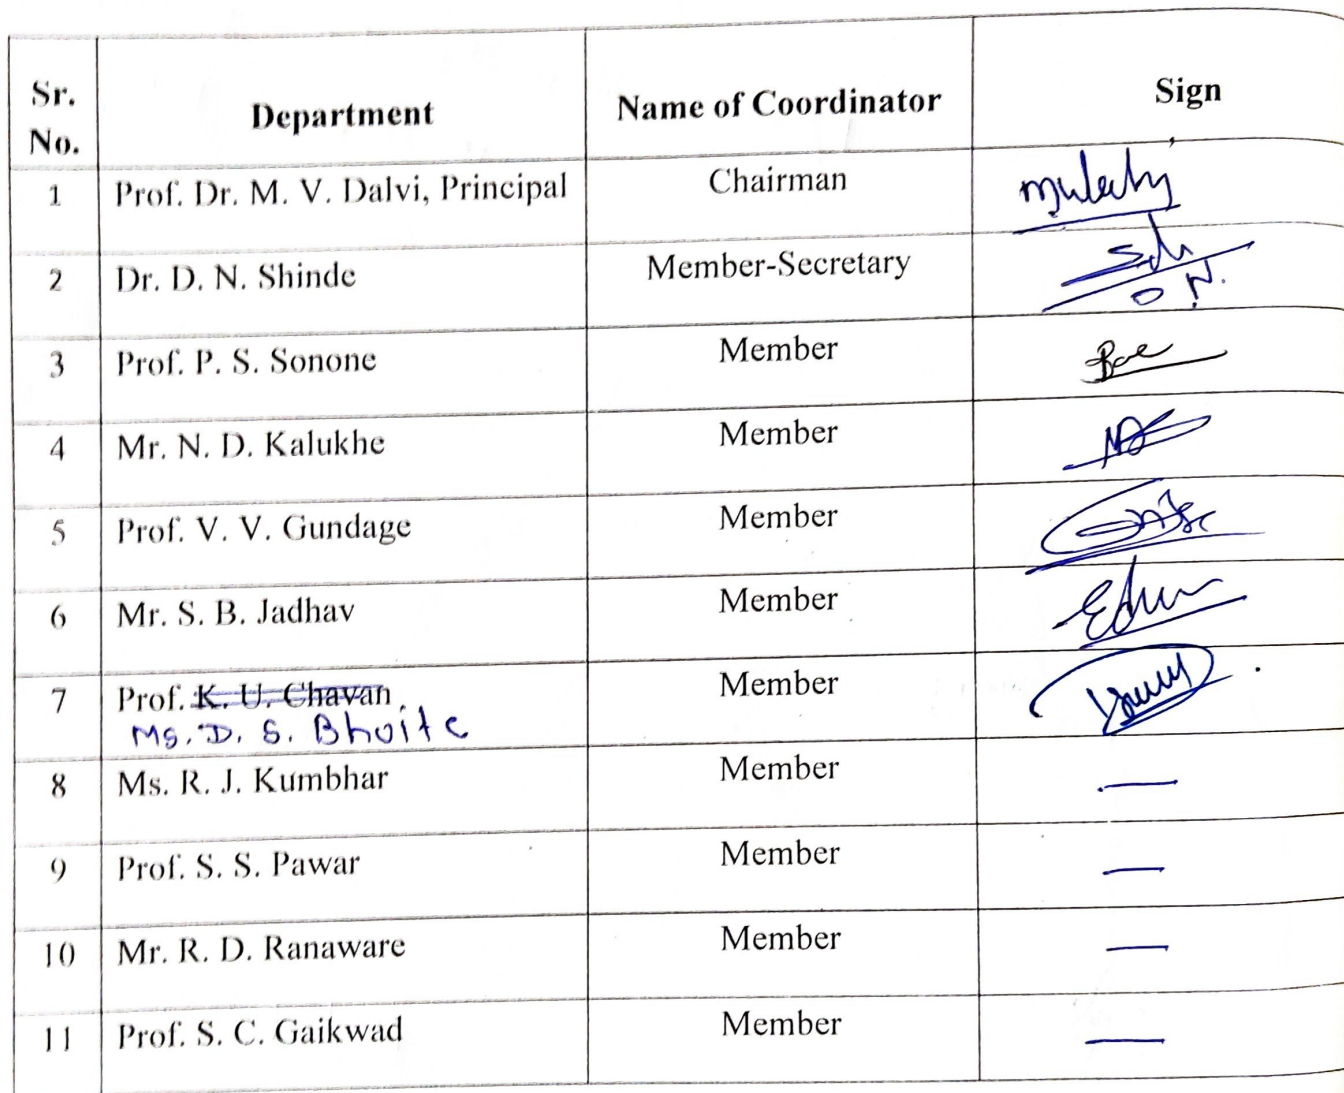 Sr. No. Department Name of Coordinator Sign
1 Prof. Dr. M. V. Dalvi, Principal Chairman
2 Dr. D. N. Shinde Member-Secretary
3 Prof. P. S. Sonone Member
4 Mr. N. D. Kalukhe Member
5 Prof. V. V. Gundage Member
6 Mr. S. B. Jadhav Member
7 Prof. K. U. Chavan Member
Ms. D. S. Bhoite
8 Ms. R. J. Kumbhar Member —
9 Prof. S. S. Pawar Member —
10 Mr. R. D. Ranaware Member —
11 Prof. S. C. Gaikwad Member —